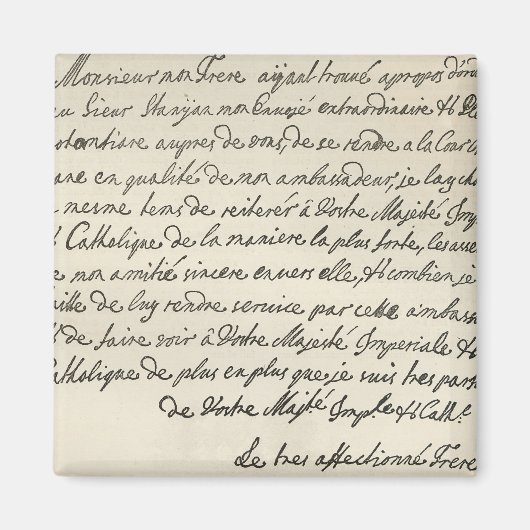 Monsieur mon Frere aijant trouvé apropos d'or
au Sieur Stanjan mon Envojé extraordinaire & Ple
potentiare aupres de vous, de se rendre a la Cour
ane en qualité de mon ambassadeur, je l'ay ch
mesme tems de reiterér â Vostre Majesté Imp
& Catholique de la maniere la plus forte, les asse
e mon amitié sincere envers elle, & combien je
aitte de luy rendre service par cette ambass
& de faire voir â Vostre Majesté Imperiale &
Catholique de plus en plus que je suis tres parf
de Vostre Majté Imple & Cathe
Le tres affectionné Frere